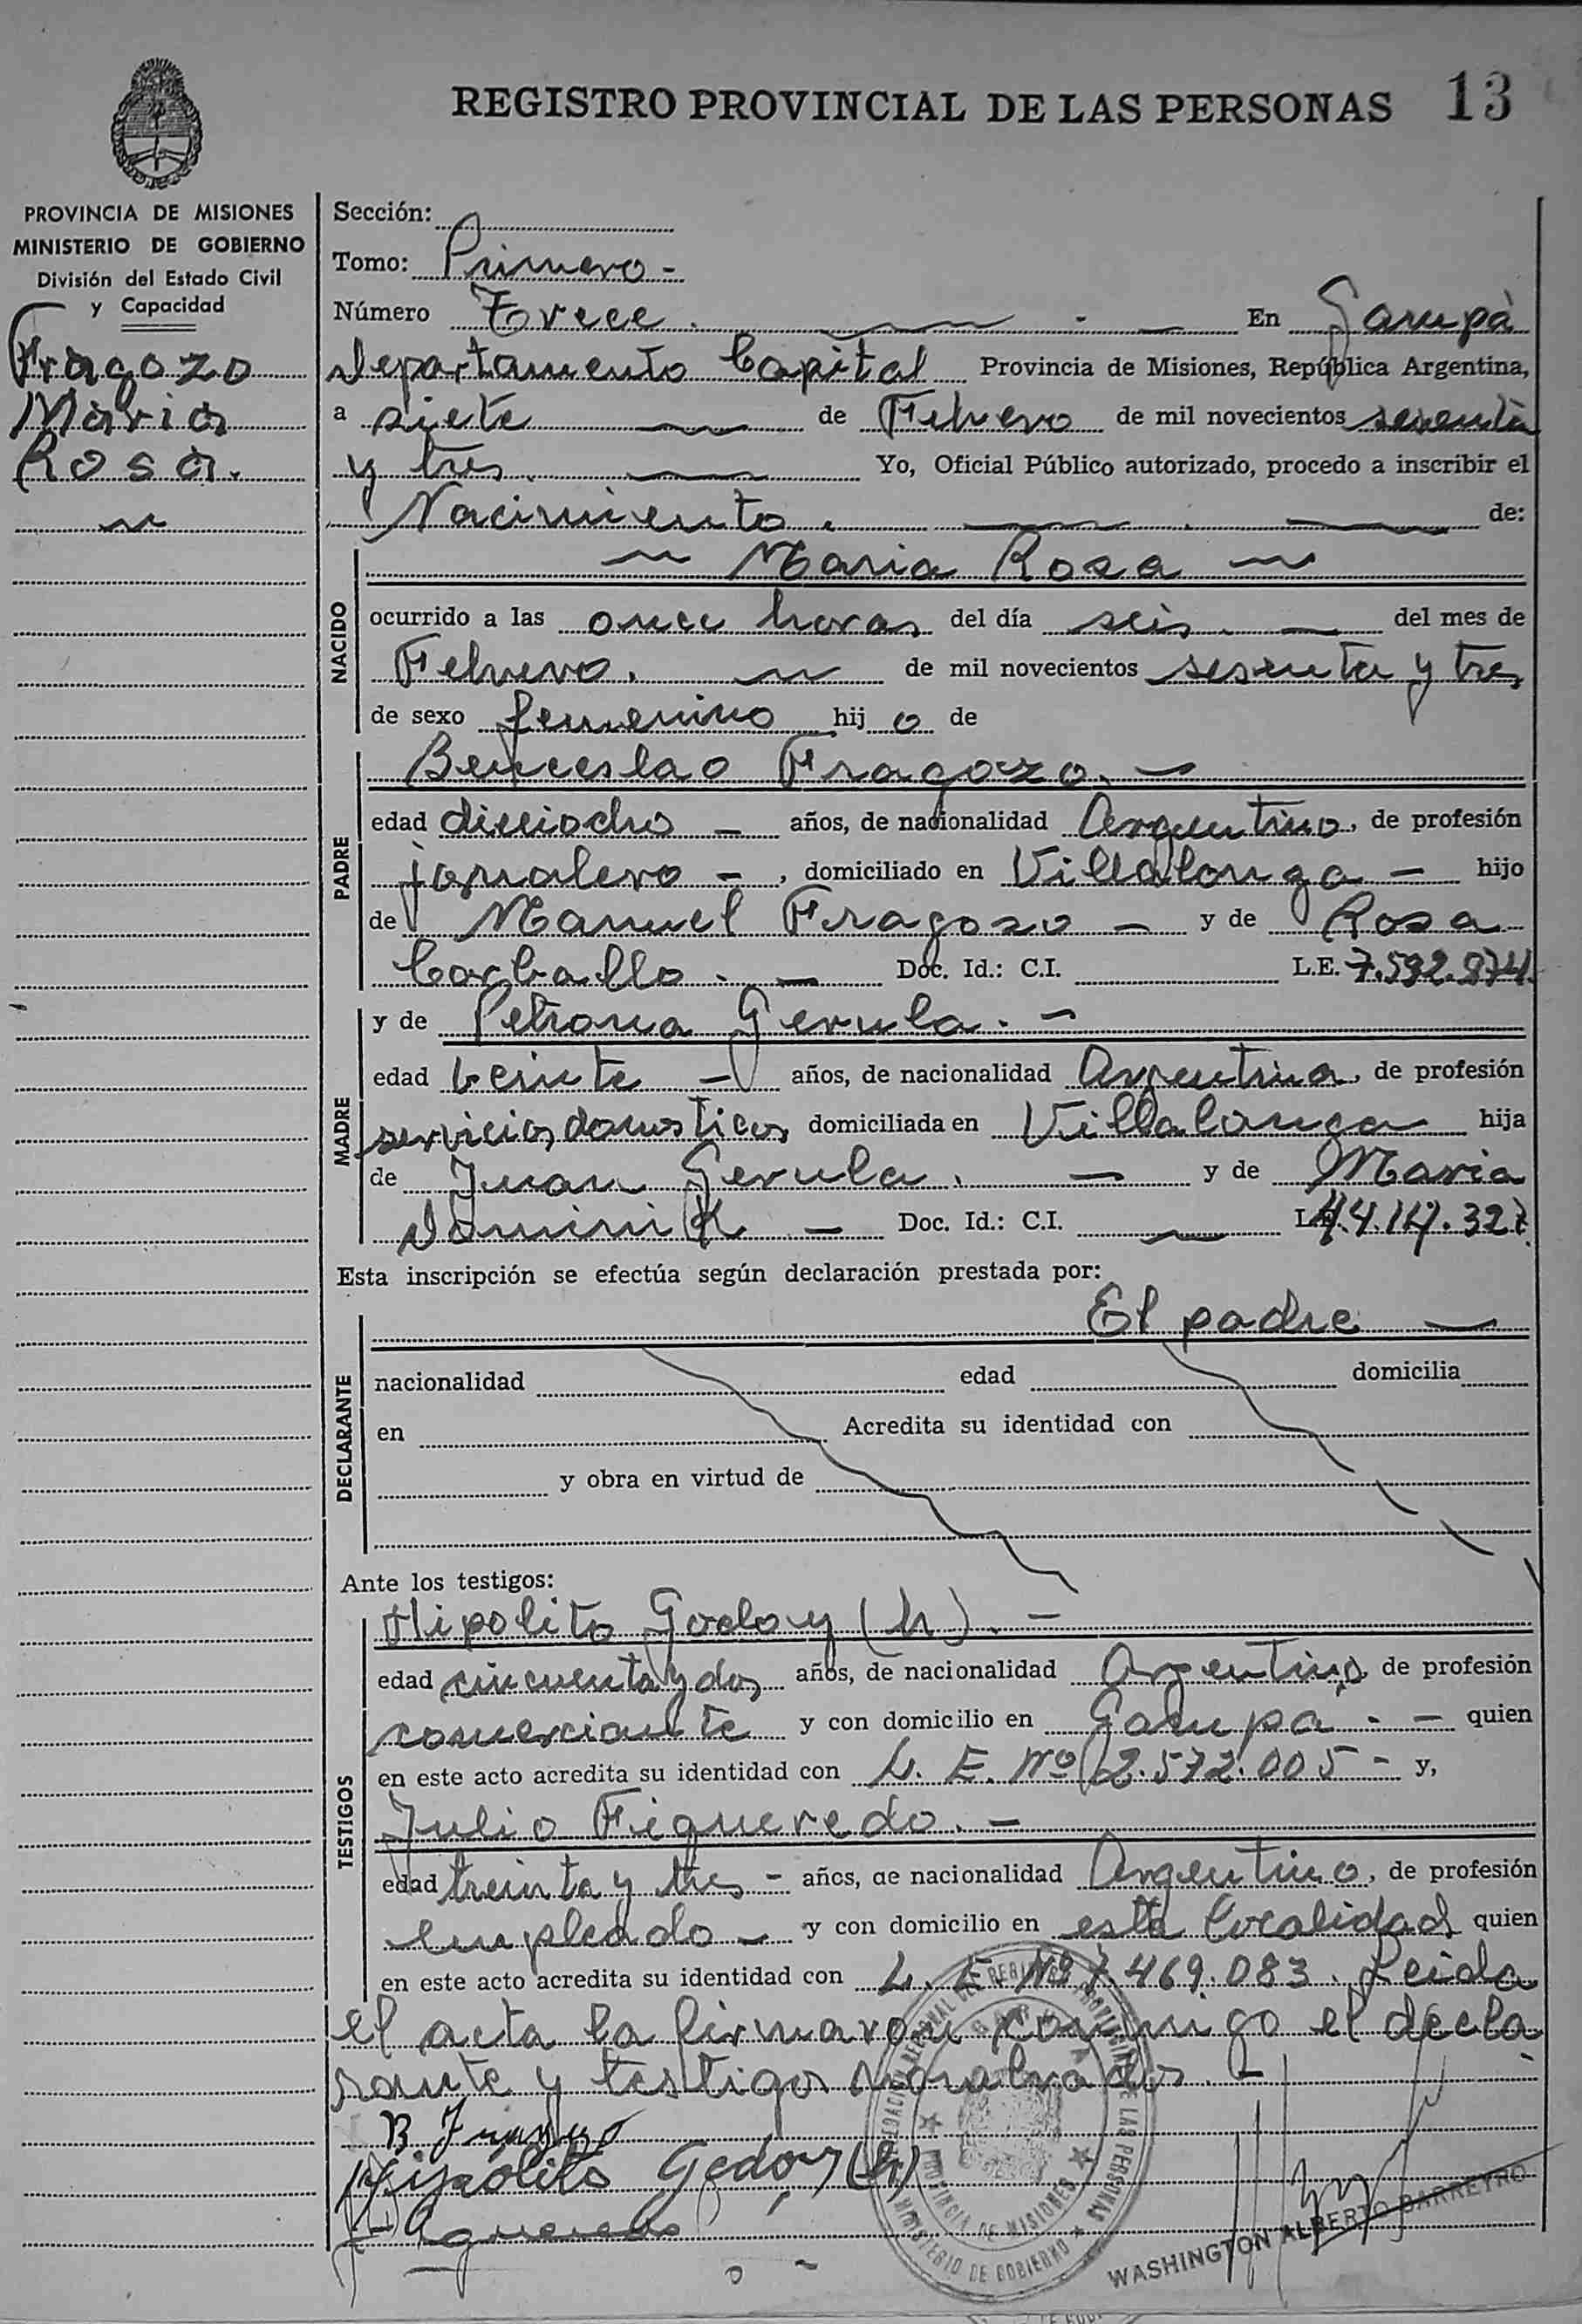 REGISTRO PROVINCIAL DE LAS PERSONAS 13
PROVINCIA DE MISIONES
MINISTERIO DE GOBIERNO
División del Estado Civil
y Capacidad
Fragozo
Maria
Rosa.
Sección:
Tomo: Primero -
Número Trece. En Garupá
Departamento Capital Provincia de Misiones, República Argentina,
a siete de Febrero de mil novecientos sesenta
y tres Yo, Oficial Público autorizado, procedo a inscribir el
Nacimiento. de:
NACIDO
Maria Rosa
ocurrido a las once horas del día seis del mes de
Febrero. de mil novecientos sesenta y tres
de sexo femenino hij o de
PADRE
Benceslao Fragozo. -
edad dieciocho - años, de nacionalidad Argentino, de profesión
jornalero - , domiciliado en Villalonga - hijo
de Manuel Fragozo - y de Rosa
Carballo. - Doc. Id.: C.I. L.E. 7.592.974.
MADRE
y de Petrona Gerula. -
edad beinte - años, de nacionalidad Argentina, de profesión
servicios domesticos domiciliada en Villalonga hija
de Juan Gerula. - y de Maria
Dominik - Doc. Id.: C.I. 4.4.114.327
Esta inscripción se efectúa según declaración prestada por:
DECLARANTE
El padre -
nacionalidad edad domicilia
en Acredita su identidad con
y obra en virtud de
Ante los testigos:
TESTIGOS
Hipolito Godoy (h). -
edad cincuenta y dos años, de nacionalidad Argentino de profesión
comerciante y con domicilio en Garupá. - quien
en este acto acredita su identidad con L. E. Nº 2.572.005 - y,
Julio Figueredo. -
edad treinta y tres - años, de nacionalidad Argentino, de profesión
empleado - y con domicilio en esta localidad quien
en este acto acredita su identidad con L. E. Nº 7.469.083. Leida
el acta la firmaron conmigo el decla
rante y testigos nombrados. -
B. Fragozo
Hipólito Godoy (h)
J. Figueredo
GARUPA
PROVINCIA DE MISIONES
MINISTERIO DE GOBIERNO
WASHINGTON ALBERTO BARREYRO